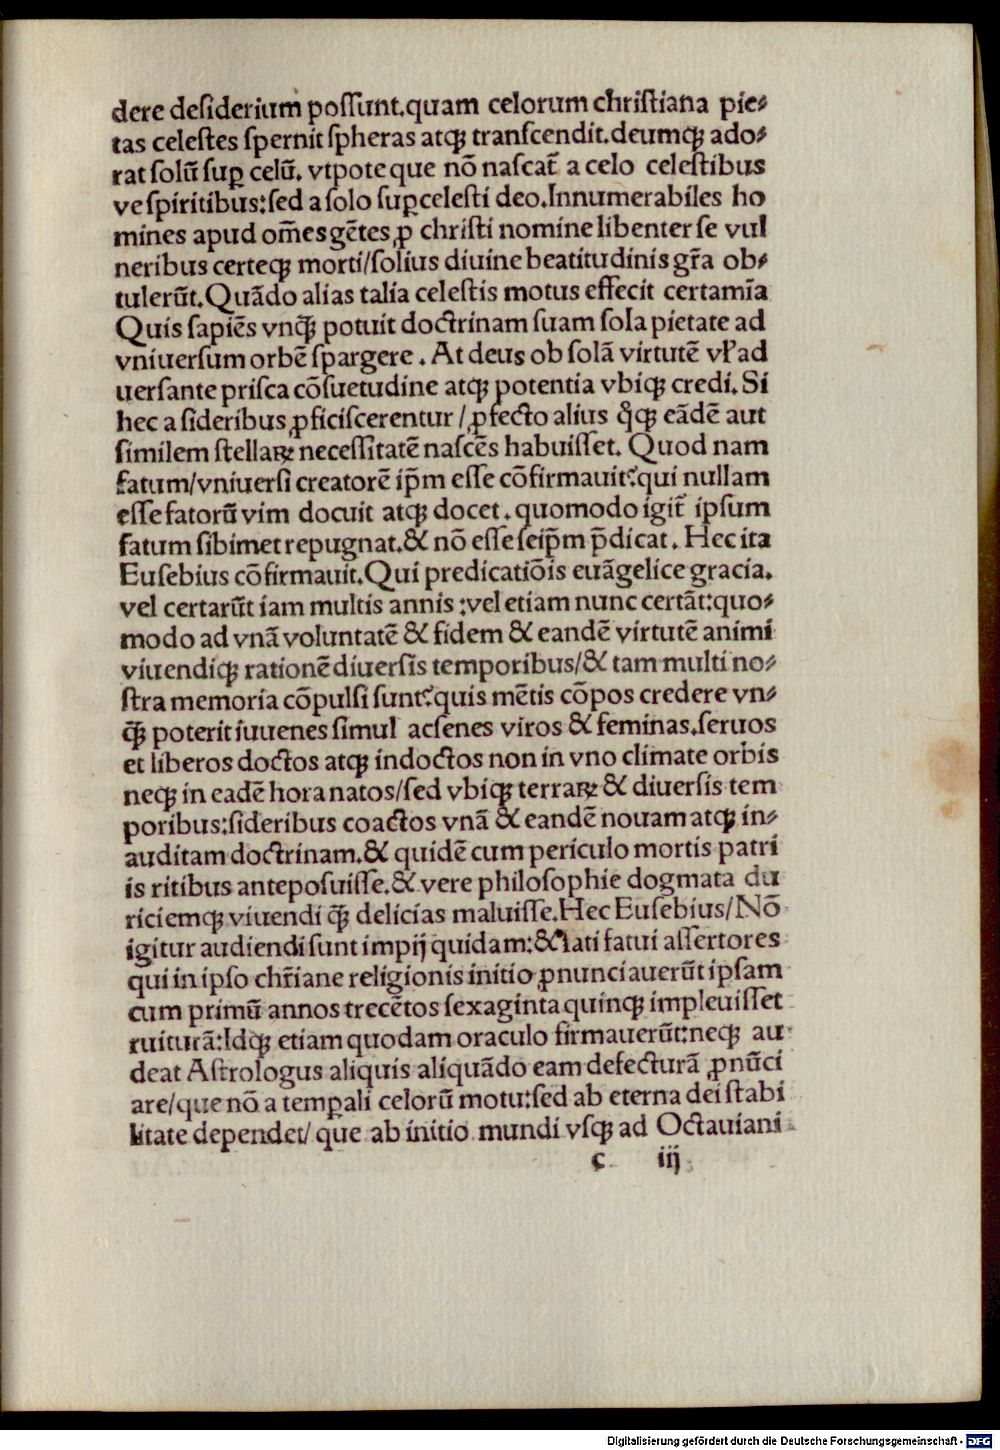 dere deſiderium poſſunt.quam celorum chriſtiana pie⸗
tas celeſtes ſpernit ſpheras atqꝫ tranſcendit.deumqꝫ ado⸗
rat ſolū ſuꝑ celū. vtpote que nō naſcat̄ a celo celeſtibus
ve ſpiritibus:ſed a ſolo ſuꝑceleſti deo.Innumerabiles ho
mines apud om̄es gētes ꝓ chriſti nomine libenter ſe vul
neribus certeqꝫ morti/ſolius diuine beatitudinis gr̄a ob⸗
tulerūt.Quādo alias talia celeſtis motus effecit certamīa
Quis ſapiēs vnqꝫ̄ potuit doctrinam ſuam ſola pietate ad
vniuerſum orbē ſpargere . At deus ob ſolā virtutē vl̓ ad
uerſante priſca cōſuetudine atqꝫ potentia vbiqꝫ credi. Si
hec a ſideribus ꝓficiſcerentur /ꝓfecto alius qͥqꝫ eādē aut
ſimilem ſtellaꝝ neceſſitatē naſcēs habuiſſet. Quod nam
fatum/vniuerſi creatorē ip̄m eſſe cōfirmauit?qui nullam
eſſe fatorū vim docuit atqꝫ docet . quomodo igit̄ ipſum
fatum ſibimet repugnat.& nō eſſe ſeip̄m p̄dicat . Hec ita
Euſebius cōfirmauit.Qui predicatiōis euāgelice gracia.
vel certarūt iam multis annis :vel etiam nunc certāt:quo⸗
modo ad vnā voluntatē & fidem & eandē virtutē animi
viuendiqꝫ rationē diuerſis temporibus/& tam multi no⸗
ſtra memoria cōpulſi ſunt?quis mētis cōpos credere vn⸗
qꝫ̄ poterit iuuenes ſimul ac ſenes viros & feminas.ſeruos
et liberos doctos atqꝫ indoctos non in vno climate orbis
neqꝫ in eadē hora natos/ſed vbiqꝫ terraꝝ & diuerſis tem
poribus:ſideribus coactos vnā & eandē nouam atqꝫ in⸗
auditam doctrinam.& quidē cum periculo mortis patri
is ritibus antepoſuiſſe.& vere philoſophie dogmata du
riciemqꝫ viuendi qꝫ̄ delicias maluiſſe.Hec Euſebius/Nō
igitur audiendi ſunt impij quidam:& lati fatui aſſertores
qui in ipſo chr̄iane religionis initio ꝓnunciauerūt ipſam
cum primū annos trecētos ſexaginta quinqꝫ impleuiſſet
ruiturā:Idqꝫ etiam quodam oraculo firmauerūt:neqꝫ au
deat Aſtrologus aliquis aliquādo eam defecturā ꝓnūci
are/que nō a temꝑali celorū motu:ſed ab eterna dei ſtabi
litate dependet/ que ab initio mundi vſqꝫ ad Octauiani
c iij
Digitalisierung gefördert durch die Deutsche Forschungsgemeinschaft - DFG